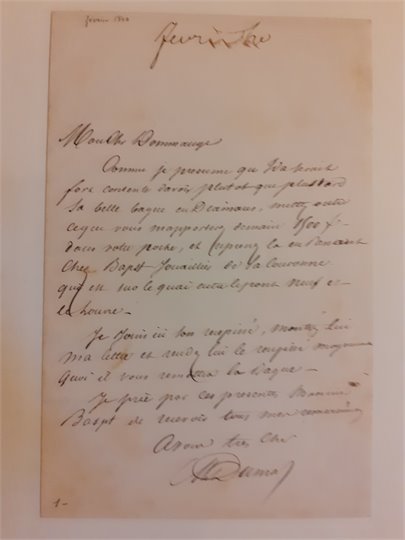 fevrier 1840
fevrier
Mon cher Dommange
Comme je presume que Ida serait
fort contente d'avoir plutot que plus tard
sa belle bague en Diamans, mettez outre
ceque vous m'apporterez demain 1500 f-
dans votre poche, et reprenez la en venant
chez Bapst Jouaillier de la Couronne
qui est sur le quai entre le pont neuf et
le Louvre -
Je Joins ici son récépissé, montrez lui
ma lettre et rendez lui le récépissé moyennant
quoi il vous remettra la bague -
Je prie par ces presentes Monsieur
Bapst de recevoir tous mes remerciemens
A vous tres cher
A Dumas
1-